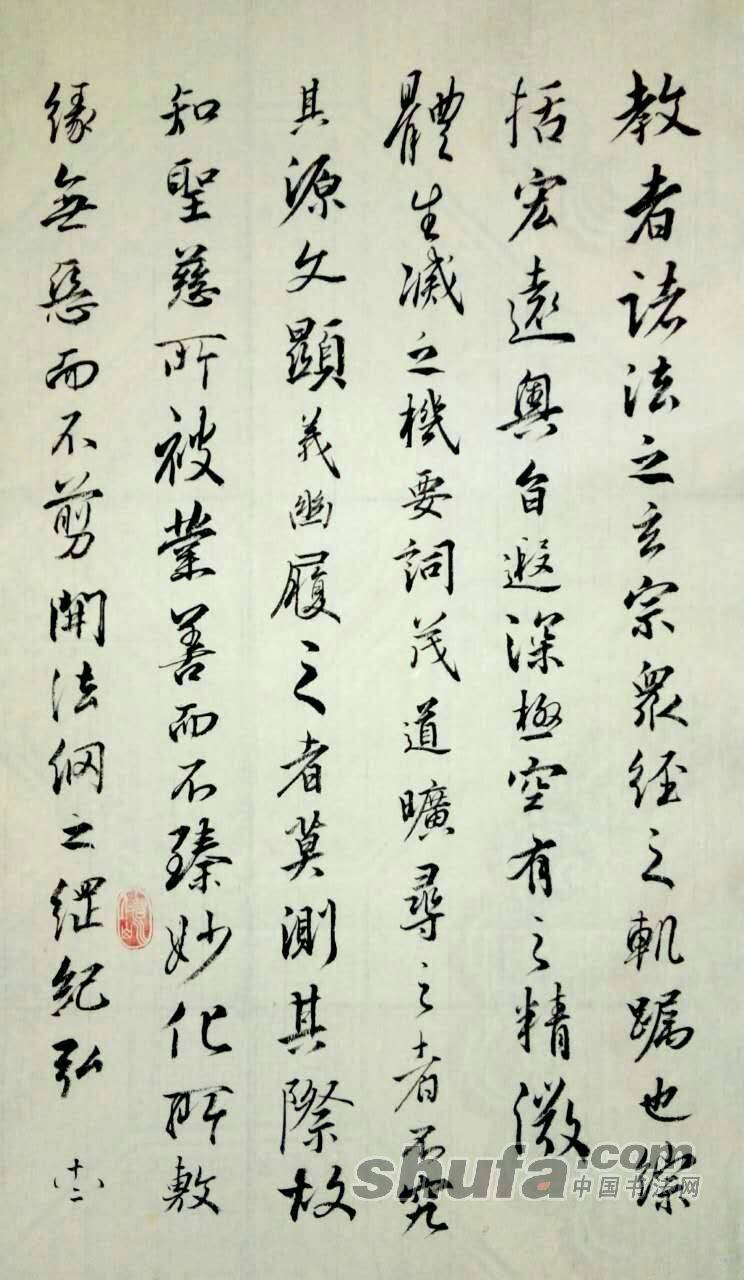 教者諸法之玄宗衆経之軌躅也綜
括宏遠奧旨遐深極空有之精微
體生滅之機要詞茂道曠尋之者不究
其源文顯義幽履之者莫測其際故
知聖慈所被業善而不臻妙化所敷
緣無惡而不剪開法網之綱紀弘
十二
shufa.com
中国书法网